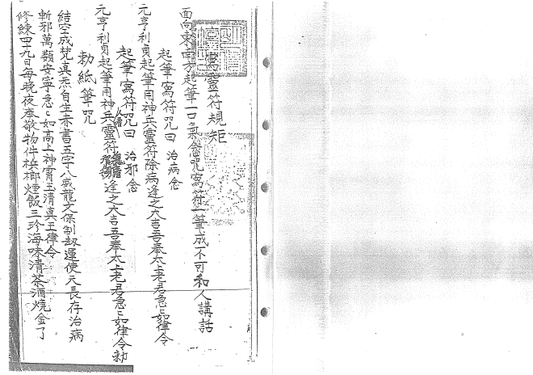 寫靈符規矩
面向東南方起筆一口氣念咒寫符一筆成不可和人講話
起筆寫符咒曰 治病念
元亨利貞起筆用神兵靈符除病逢之大吉吾奉太上老君急急如律令
起筆寫符咒曰 治邪念
元亨利貞起筆用神兵靈符逢之大吉吾奉太上老君急急如律令勅
勅紙筆咒
結空成梵真炁自生赤書五字八威龍文保制劫運使天長存治病
斬邪萬類安寧急急如高上神霄玉清真王律令
修練四十九日每晚夜奉敬物件檳榔煙飯三珍海味清茶酒燒金了